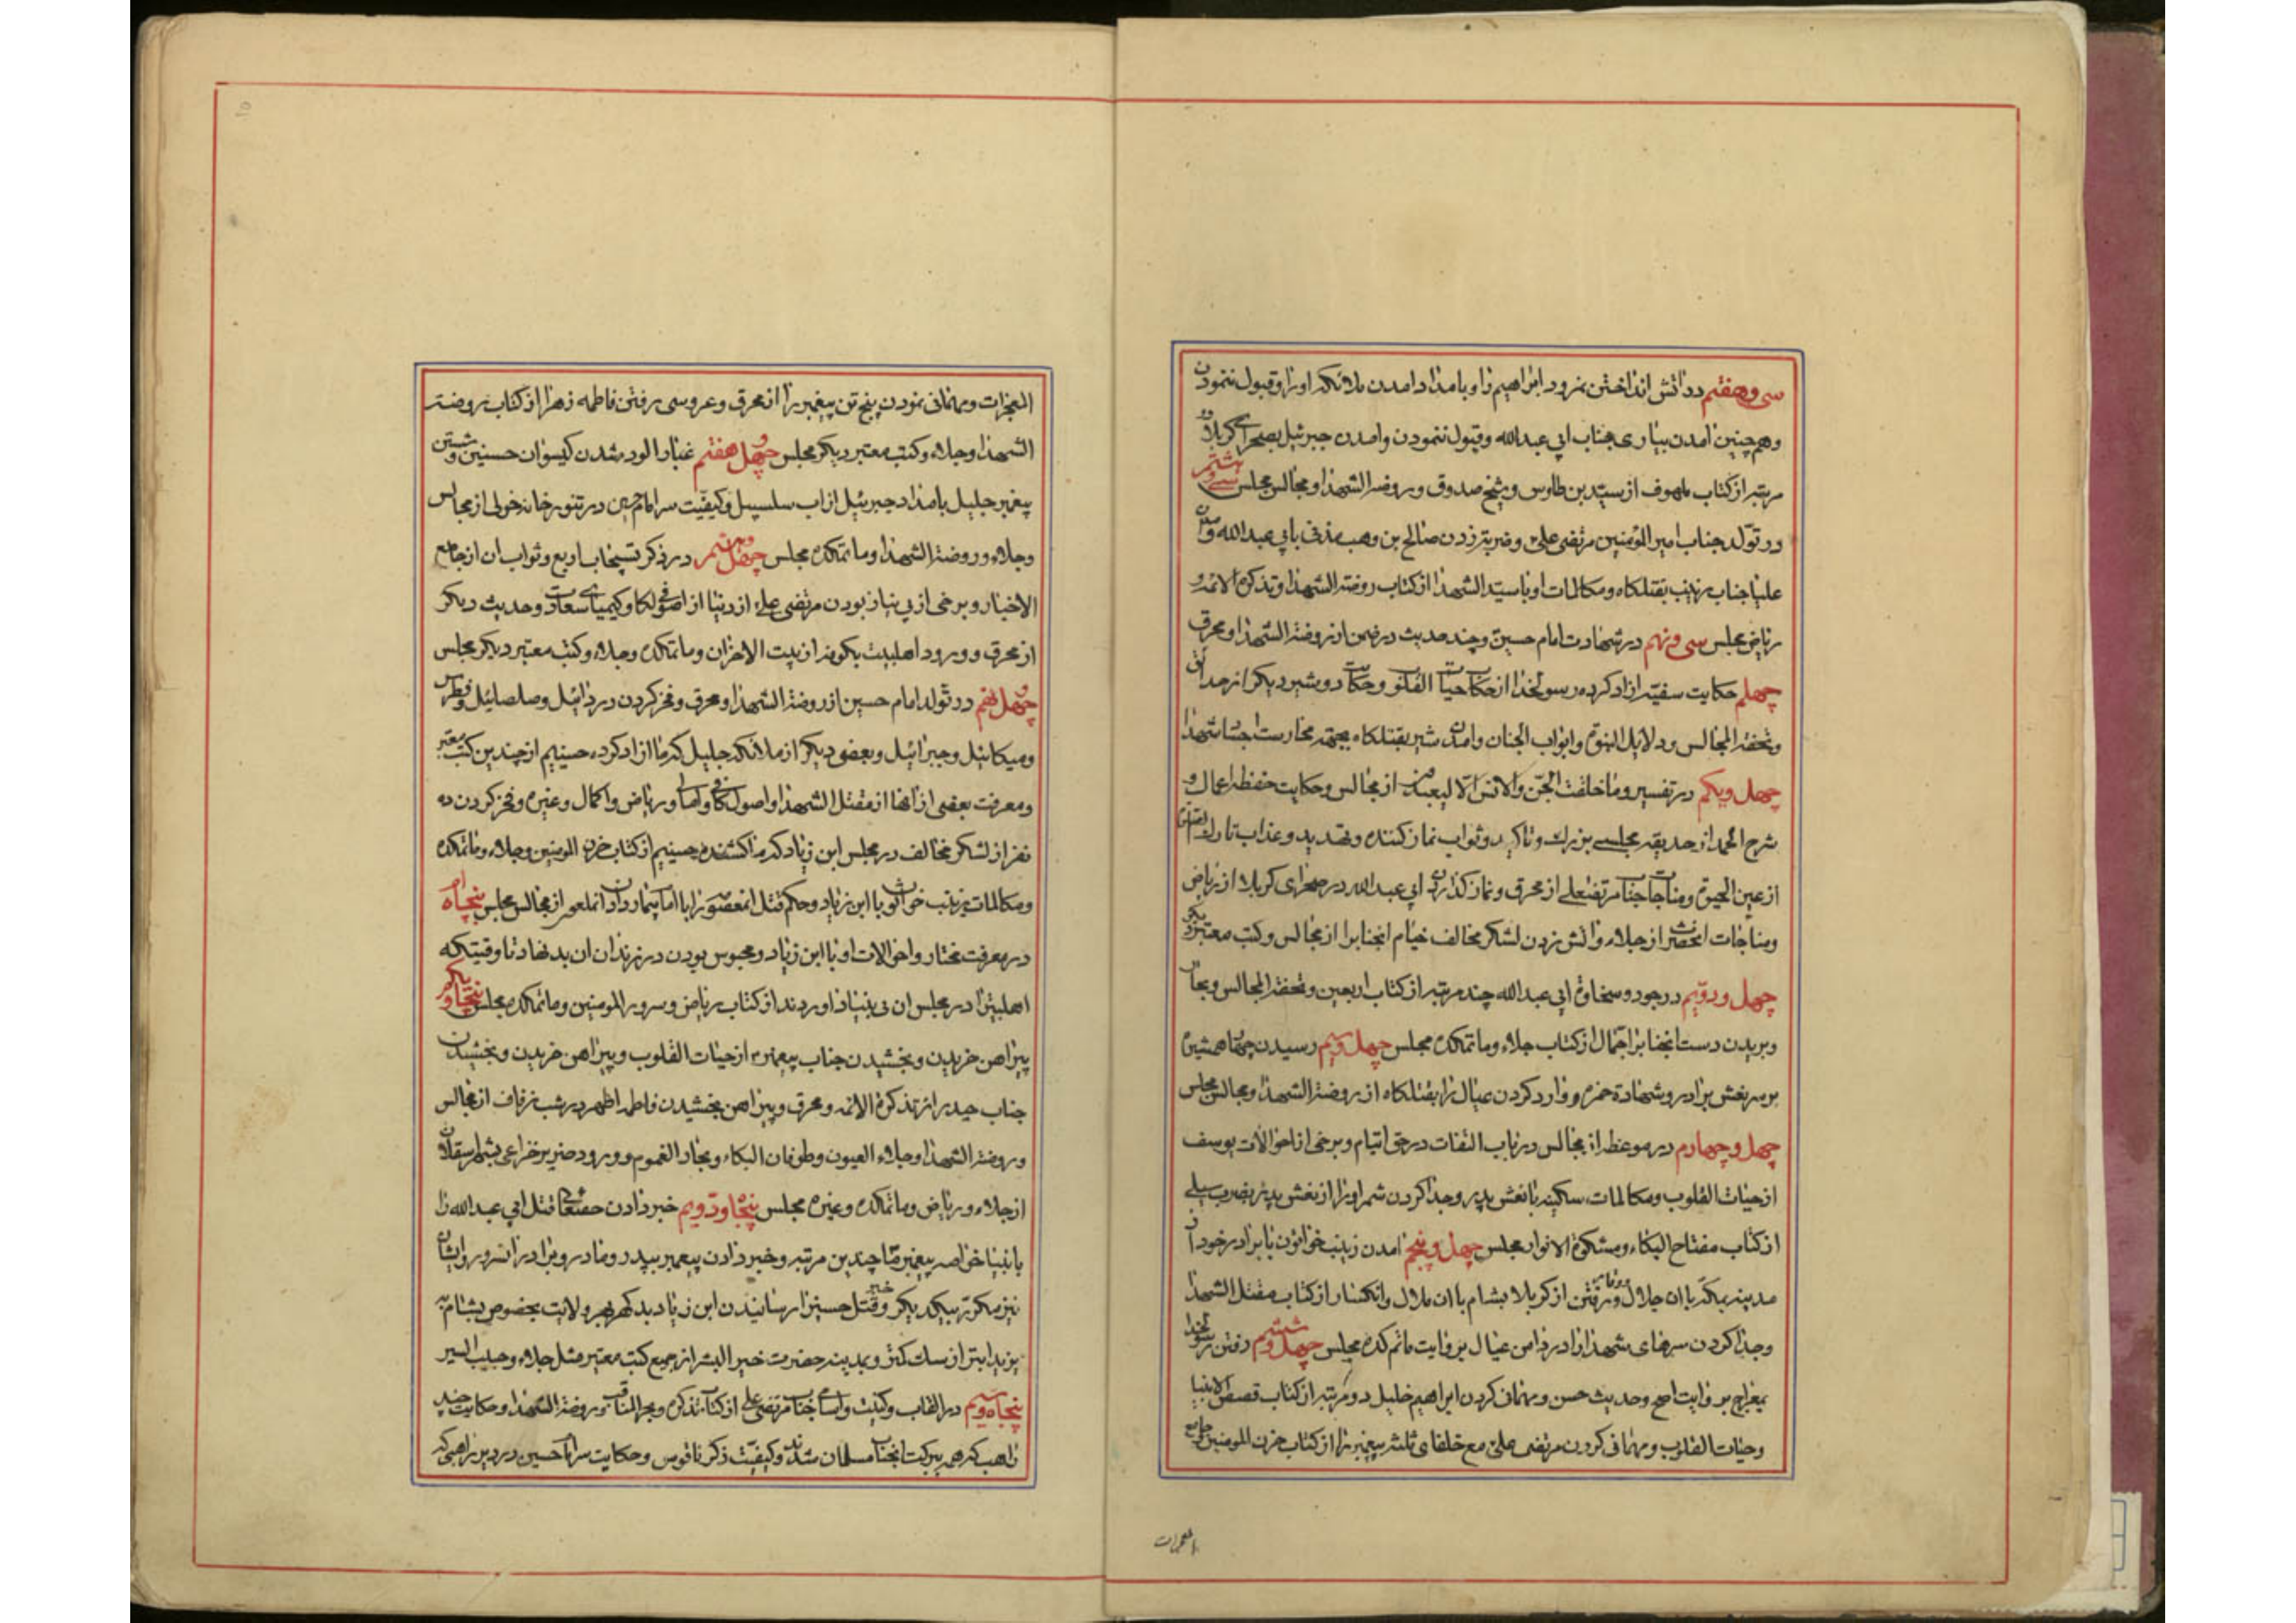 سی و هفتم در اتش انداختن نمرود ابراهیم را و بامداد امدن ملائکه او را و قبول ننمودن
و همچنین امدن بیاری جناب ابی عبدالله و قبول ننمودن و امدن جبرئیل بصحرای کربلا دو
مرتبه از کتاب ملهوف از سید بن طاوس و شیخ صدوق و روضة الشهدا و مجالس مجلس سی و هشتم
در تولد جناب امیر المؤمنین مرتضی علی و ضربت زدن صالح بن وهب مذنی بابی عبدالله و امدن
علیا جناب زینب بقتلکاه و مکالمات او با سید الشهدا از کتاب روضة الشهدا و تذکرة الائمه و
ریاض مجلس سی و نهم در شهادت امام حسین و چند حدیث در ضمن ان از روضة الشهدا و محرق
چهلم حکایت سفینه ازاد کرده رسولخدا از حکایت حیات القلوب و حکایت دو شیر دیکر از حدایق
و تحفة المجالس و دلایل النبوة و ابواب الجنان و امدن شیر بقتلکاه بجهة محارست اجساد شهدا
چهل و یکم در تفسیر و ما خلقت الجن و الانس الا لیعبدون از مجالس و حکایت حفظه اعمال و
شرح الحمد از حدیقه مجلسی بزرک و تاکید و ثواب نماز کننده و تهدید و عذاب تارک الصلوة
از عین الحیوة و مناجات جناب مرتضعلی از محرق و نماز کذاردن ابی عبدالله در صحرای کربلا از ریاض
و مناجات انحضرت از جلاء و اتش زدن لشکر مخالف خیام انجنابرا از مجالس و کتب معتبر دیکر
چهل و دویم در جود و سخاوة ابی عبدالله چند مرتبه از کتاب اربعین و تحفة المجالس و بحار
و بریدن دست انجنابرا جمال از کتاب جلاء و ماتمکده مجلس چهل و سیم رسیدن چهار همشیره
بر سر نعش برادر و شهادة حمزه و وارد کردن عیال را بقتلکاه از روضة الشهدا و مجالس مجلس
چهل و چهارم در موعظه از مجالس در باب التفات در حق ایتام و برخی از احوالات یوسف
از حیات القلوب و مکالمات سکینه با نعش پدر و جدا کردن شمر او را از نعش پدر بضرب سیلی
از کتاب مفتاح البکاء و مشکوة الانوار مجلس چهل و پنجم امدن زینب خواتون با برادر خود از
مدینه بمکه با ان جلال و رفتن از کربلا بشام با ان ملال و انکسار از کتاب مقتل الشهدا
و جدا کردن سرهای شهدا از در دامن عیال بروایت ماتم کده مجلس چهل و ششم رفتن رسولخدا
بمعراج بروایت اصح و حدیث حسن و مهمان کردن ابراهیم خلیل دو مرتبه از کتاب قصص الانبیا
و حیات القلوب و مهمانی کردن مرتضی علی مع خلفای ثلثه پیغمبر را از کتاب حزن المومنین و جامع
المعجزات
المعجزات و مهمانی نمودن پنج تن پیغمبر را از محرق و عروسی رفتن فاطمه زهرا از کتاب روضة
الشهدا و جلاء و کتب معتبر دیکر مجلس چهل و هفتم غبار الود شدن کیسوان حسنین و شستن
پیغمبر جلیل بامداد جبرئیل از اب سلسبیل و کیفیت سر امام حسین در تنور خانه خولی از مجالس
و جلاء و روضة الشهدا و ماتمکده مجلس چهل و هشتم در ذکر تسبیحات اربع و ثواب ان از جامع
الاخبار و برخی از بی نیاز بودن مرتضی علی از دنیا از اصول کافی و کیمیای سعادت و حدیث دیکر
از محرق و ورود اهلبیت بکوفه از بیت الاحزان و ماتمکده و جلاء و کتب معتبر دیکر مجلس
چهل و نهم در تولد امام حسین از روضة الشهدا و محرق و فخر کردن دردائیل و صلصائیل و فطرس
و میکائیل و جبرائیل و بعضی دیکر از ملائکه جلیل که ما ازاد کرده حسینیم از چندین کتب معتبر
و معرفت بعضی از انها از مقتل الشهدا و اصول کافی و امالی و ریاض و اکمال و غیره و فخر کردن ده
نفر از لشکر مخالف در مجلس ابن زیاد که ما کشنده حسینیم از کتاب حزن المومنین و جلاء و ماتمکده
و مکالمات زینب خواتون با ابن زیاد و حکم قتل انمعصومه را با امام بیمار دادن انملعون از مجالس مجلس پنجاهم
در معرفت مختار و احوالات او با ابن زیاد و محبوس بودن در زندان ان بد نهاد تا وقتیکه
اهلبیترا در مجلس ان بی بنیاد اوردند از کتاب ریاض و سرور المومنین و ماتمکده مجلس پنجاه و یکم
پیراهن خریدن و بخشیدن جناب پیغمبر از حیات القلوب و پیراهن خریدن و بخشیدن
جناب حیدر از تذکرة الائمه و محرق و پیراهن بخشیدن فاطمه اطهر در شب زفاف از مجالس
و روضة الشهدا و جلاء العیون و طوفان البکاء و بحار الغموم و ورود ضریر خزاعی بشهر عسقلان
از جلاء و ریاض و ماتمکده و غیره مجلس پنجاه و دویم خبر دادن حقتعالی قتل ابی عبدالله را
بانبیا خواصه پیغمبر ما چندین مرتبه و خبر دادن پیغمبر بپدر و مادر و برادر انسرور و ایشان
نیز مکرر بیکدیکر و خبر قتل حسین را رسانیدن ابن زیاد بد کهر بهر ولایت بخصوص بشام به
یزید ابتر از سک کمتر و بمدینه حضرت خیر البشر از جمیع کتب معتبر مثل جلاء و حبیب السیر
پنجاه و سیم در القاب و کنیت و اسامی جناب مرتضی علی از کتاب تذکره و بحر المناقب و روضة الشهدا و حکایت چند
راهب که هر ببرکت انجناب مسلمان شدند و کیفیت ذکر ناقوس و حکایت سر امام حسین در دیر راهبی که